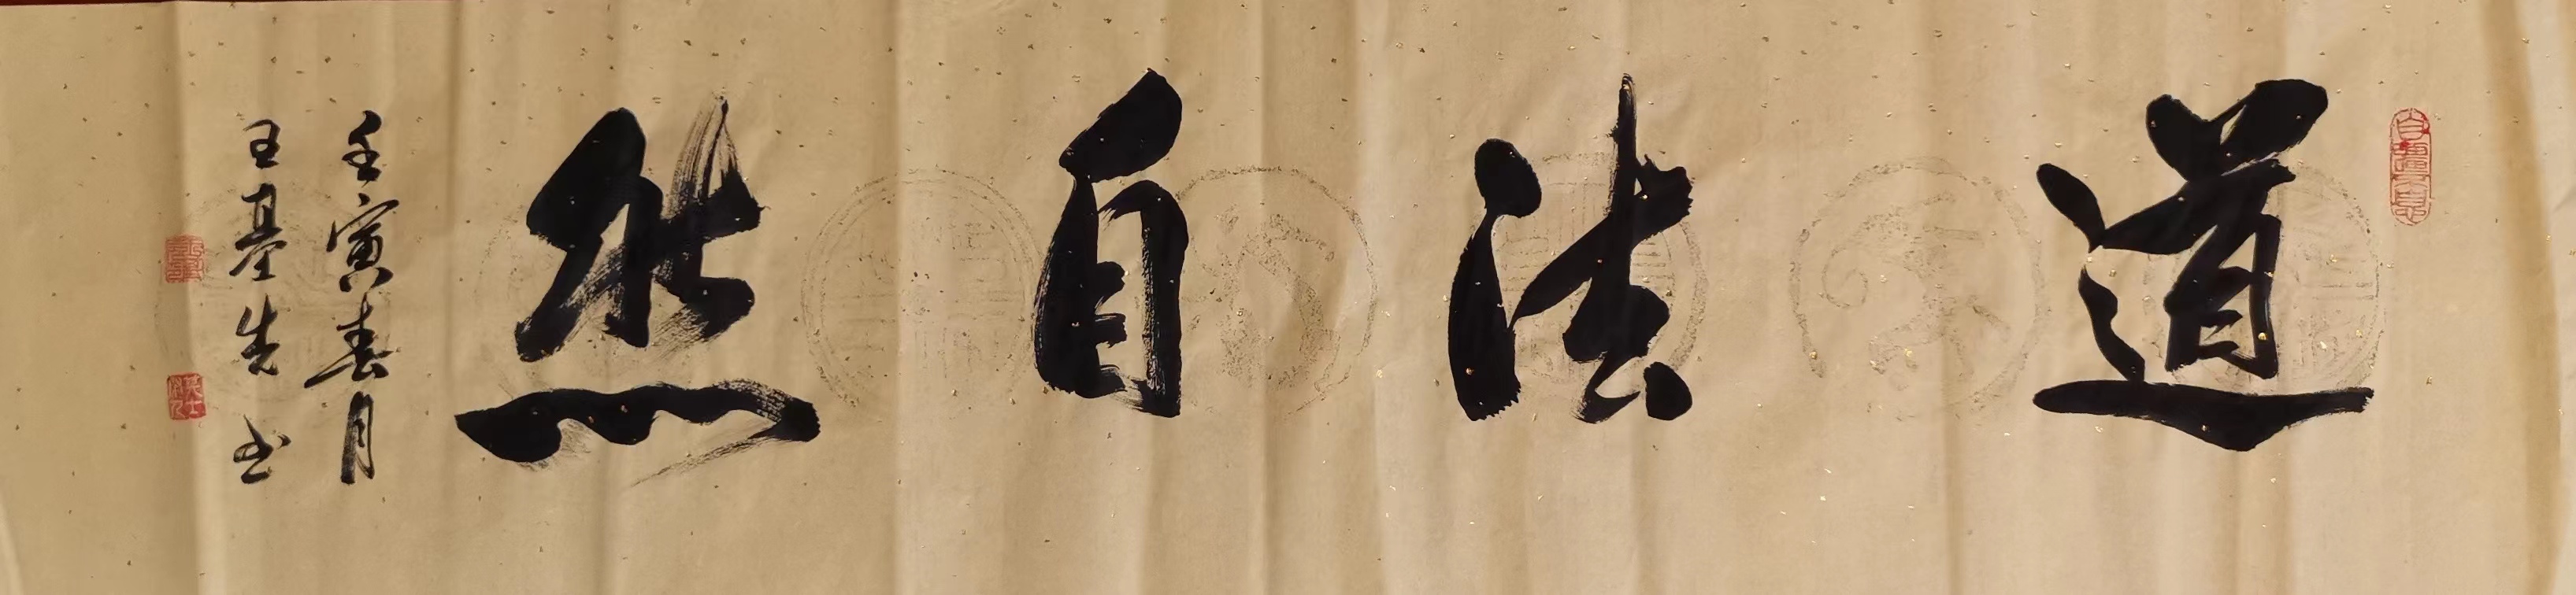 道法自然
壬寅春月
王基先书